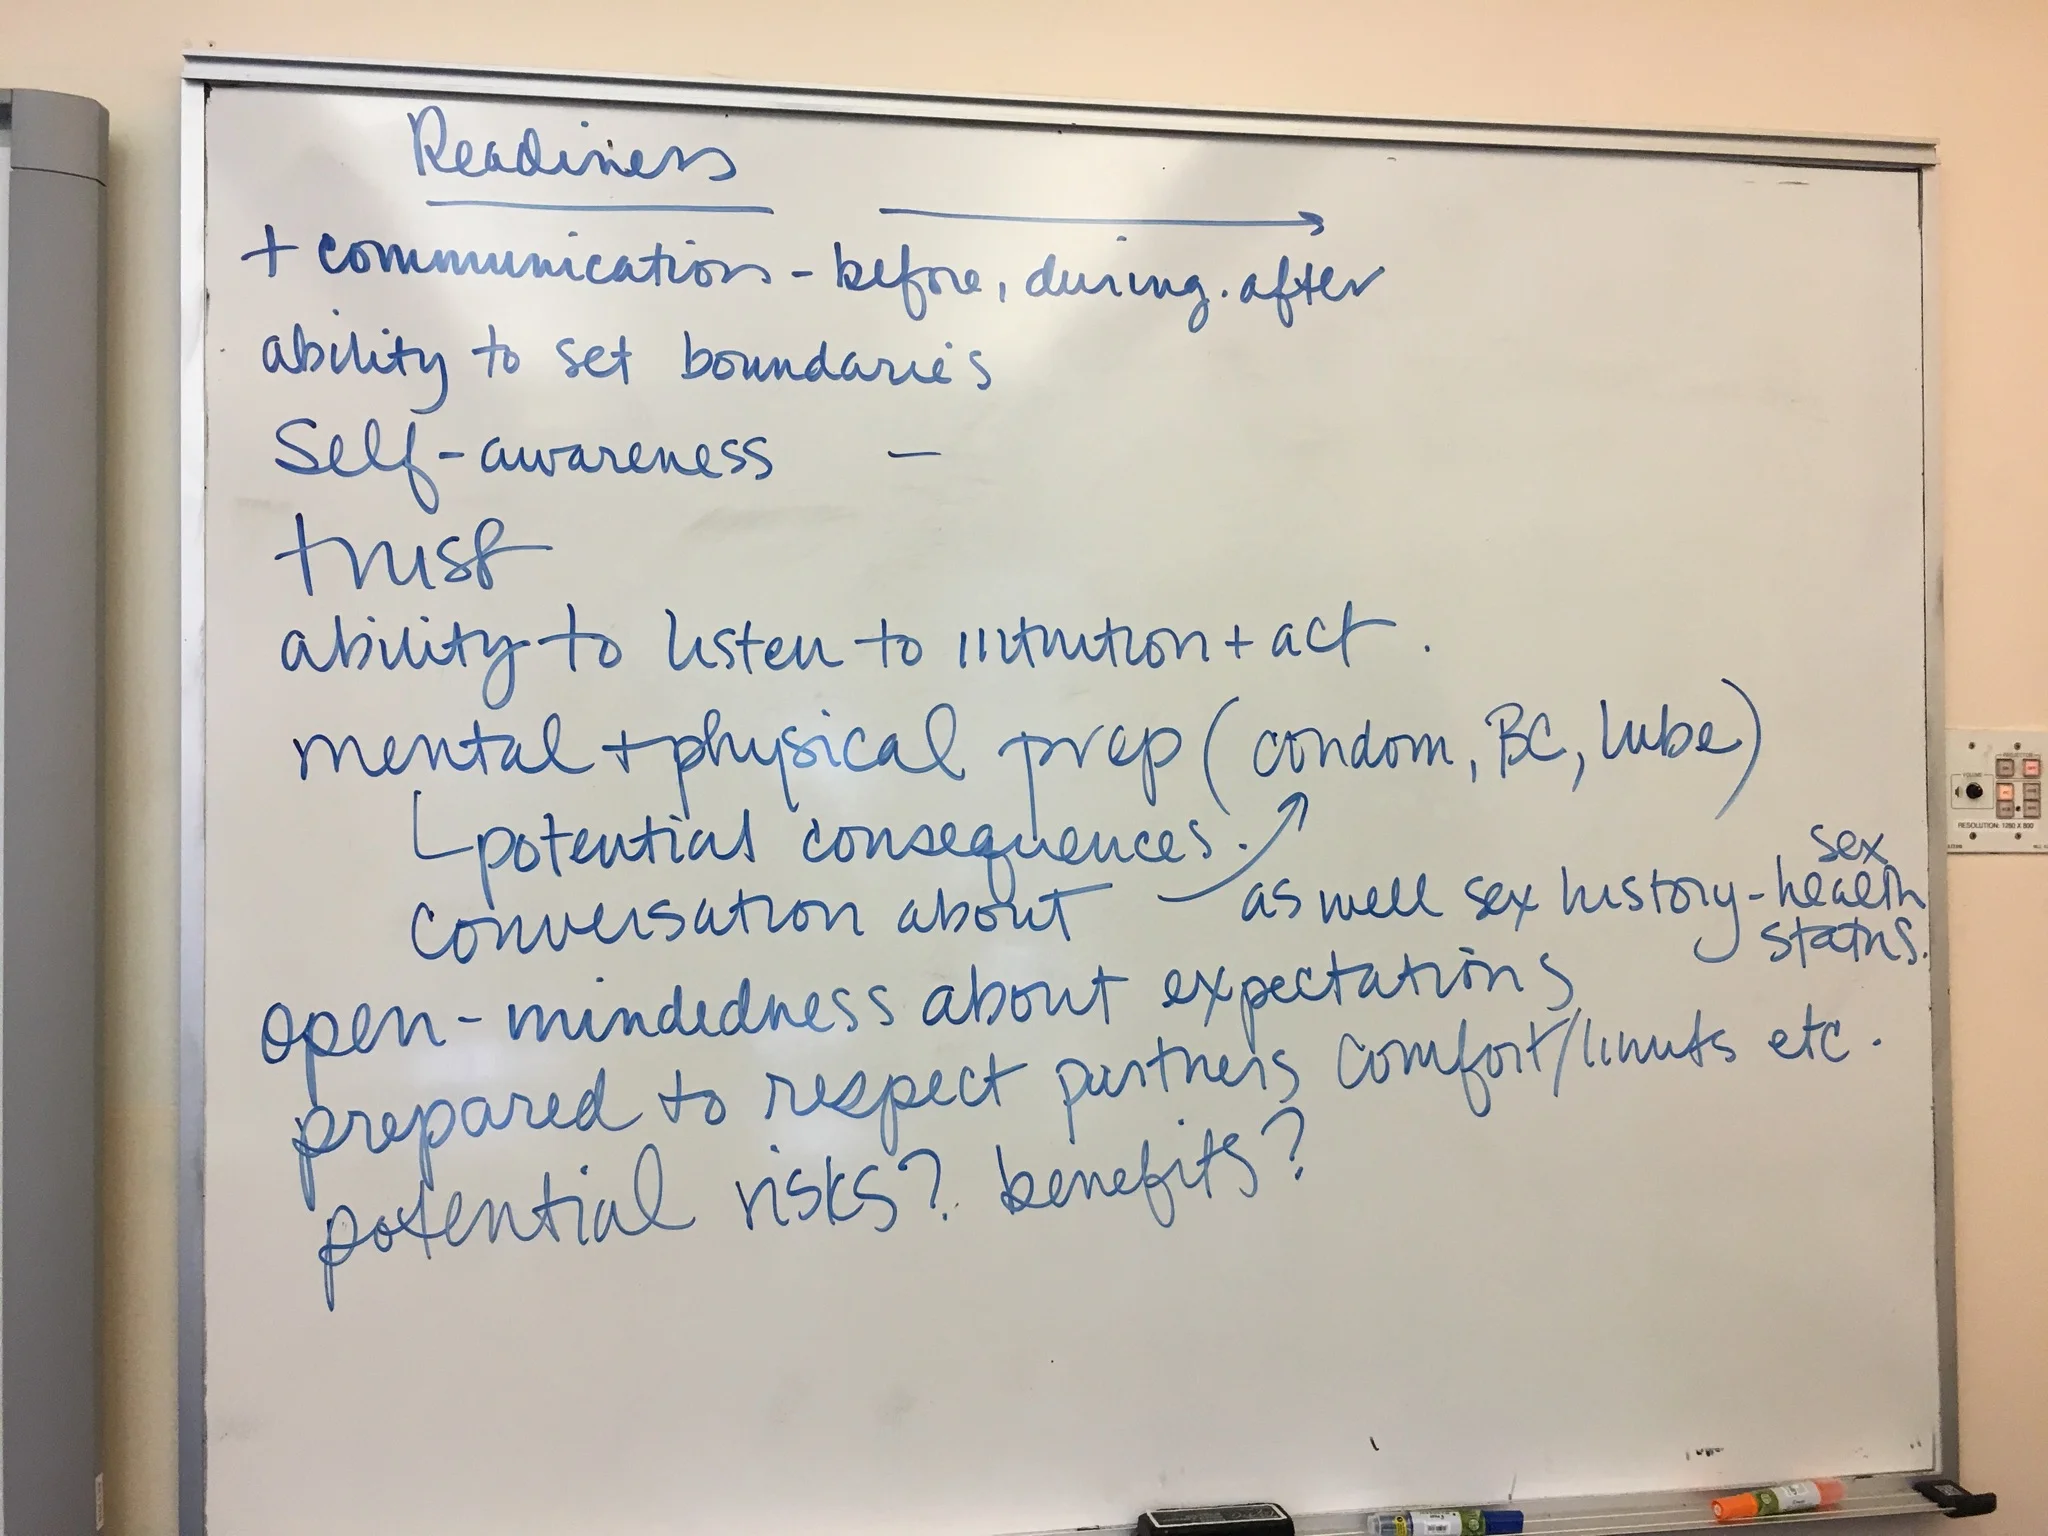 Readiness
+ communication - before, during. after
ability to set boundaries
Self-awareness -
trust
ability to listen to intuition + act.
mental + physical prep (condom, BC, lube)
potential consequences.
conversation about as well sex history - sex health status.
open-mindedness about expectations
prepared to respect partners comfort/limits etc.
potential risks? benefits?
RESOLUTION: 1280 X 800